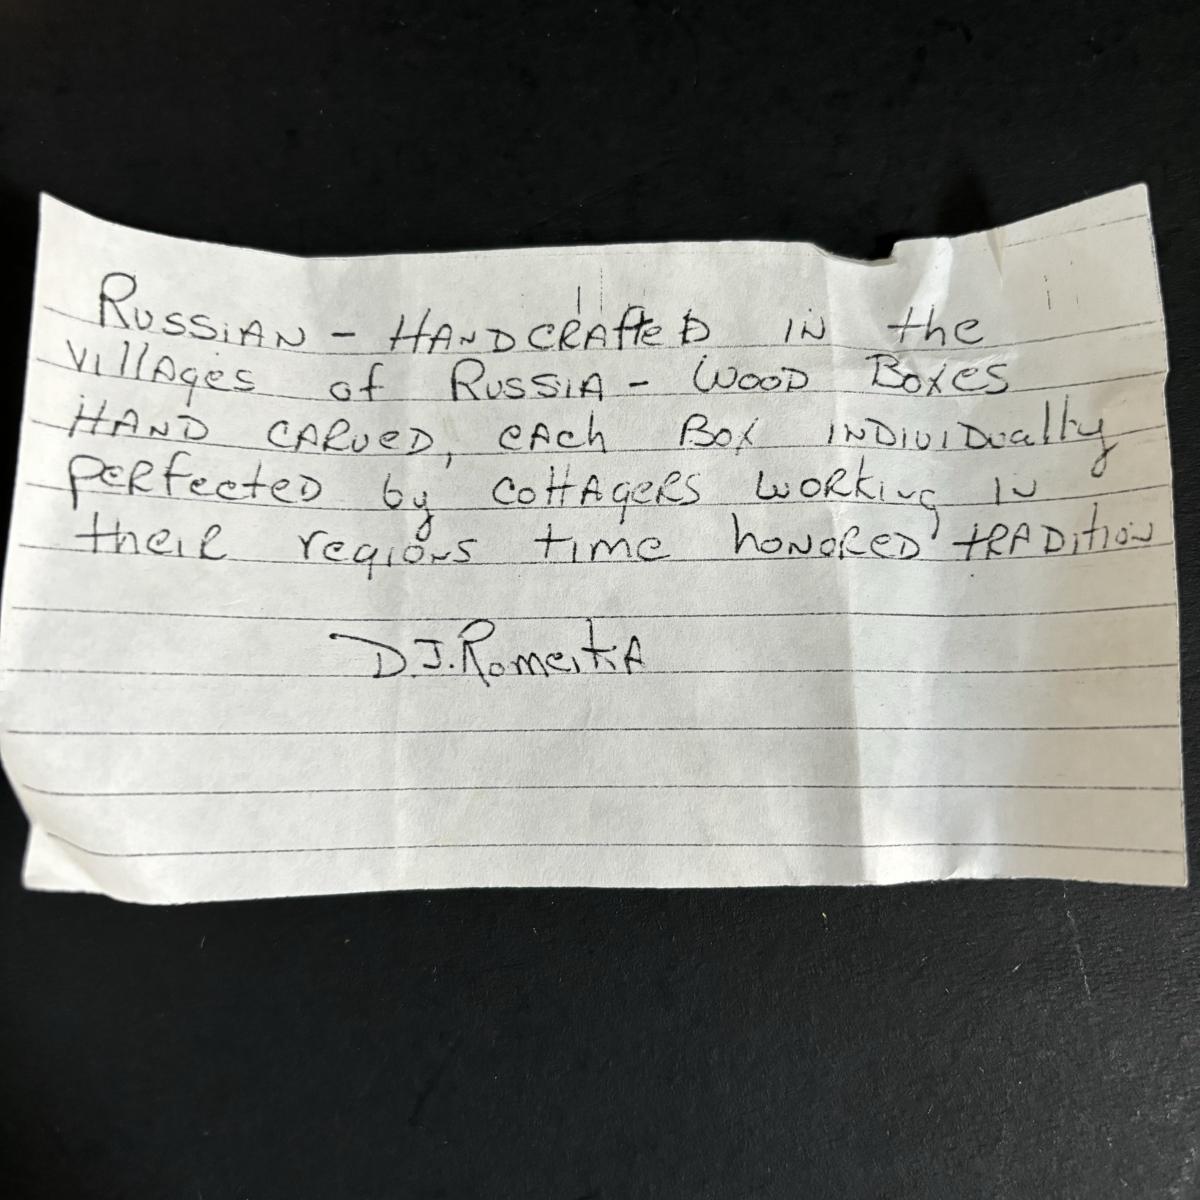 RUSSIAN - HANDCRAfteD IN the
VillAges of RUSSIA - WOOD BOXES
HAND CARVED, eACh BOX INDIVIDually
peRfecteD by cottAgeRS WORKing IN
theiR regIONS time hONORED tRADitioN
D.J. RomeikA